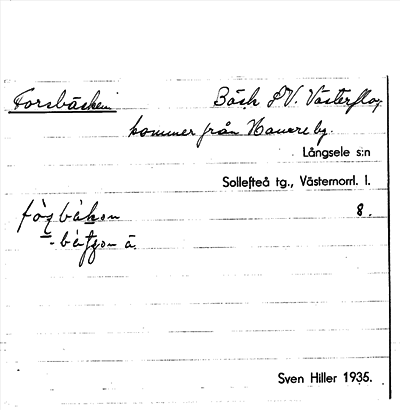 Forsbäcken Bäck SV. Västerflo,
kommer från Havreby.
Långsele s:n
Sollefteå tg., Västernorrl. l.
8.
Sven Hiller 1935.